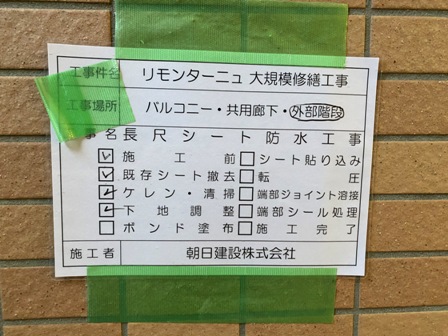 工事件名 リモンターニュ 大規模修繕工事
工事場所 バルコニー・共用廊下・外部階段
事名 長尺シート防水工事
施工前 シート貼り込み
既存シート撤去 転圧
ケレン・清掃 端部ジョイント溶接
下地調整 端部シール処理
ボンド塗布 施工完了
施工者 朝日建設株式会社